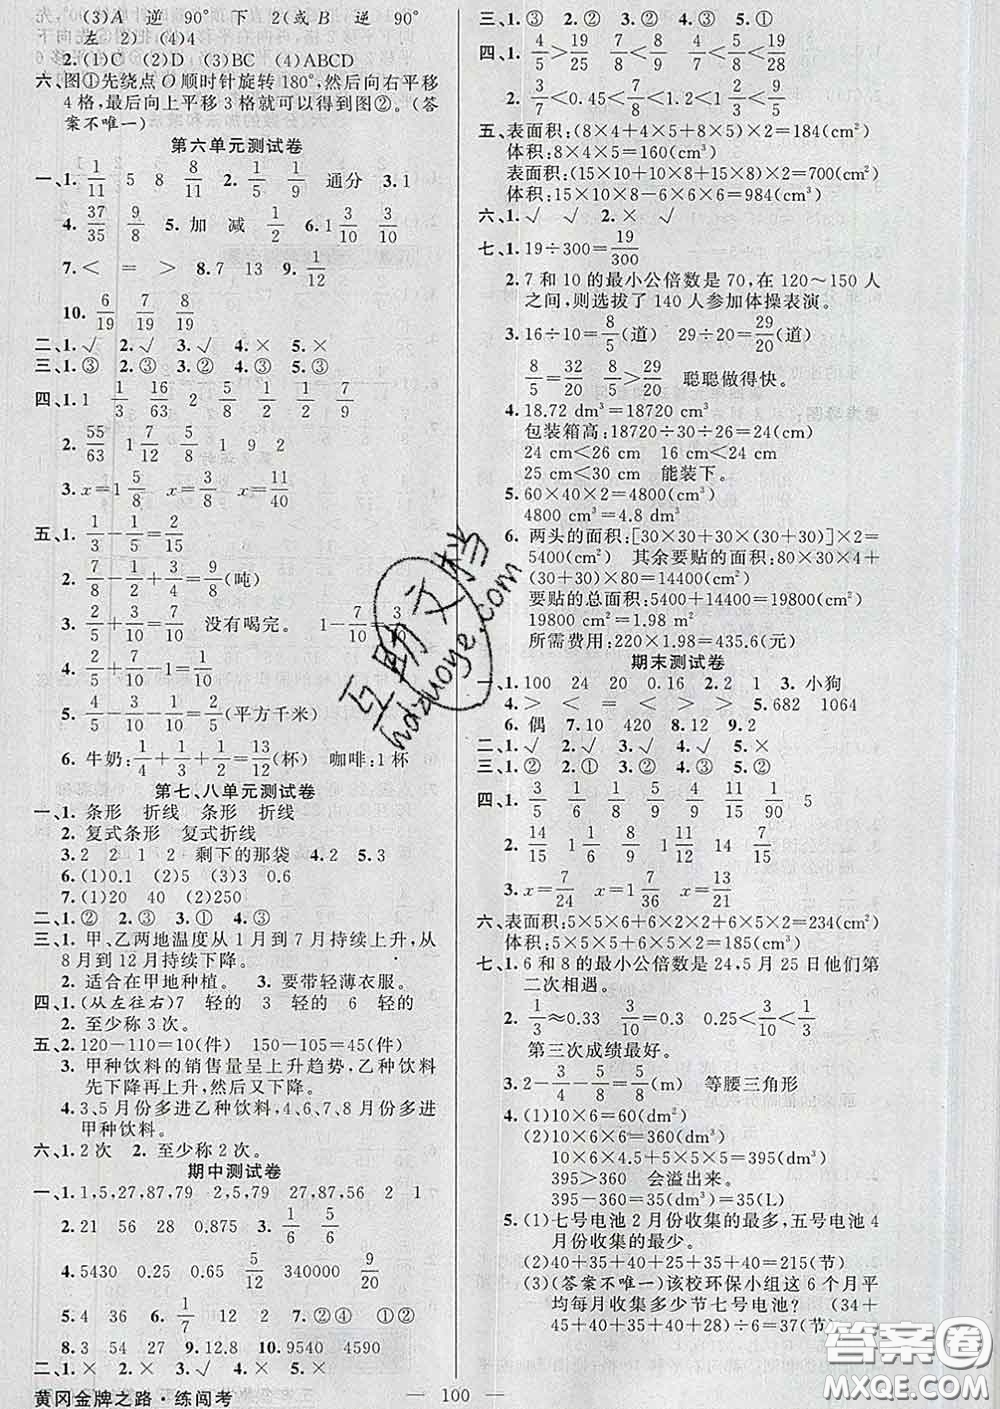 (3)A 逆 90° 下 2(或 B 逆 90°
左 2) (4)4
2. (1)C (2)D (3)BC (4)ABCD
六、图①先绕点 O 顺时针旋转 180°,然后向右平移
4 格,最后向上平移 3 格就可以得到图②。(答
案不唯一)
第六单元测试卷
一、1. 1/11 5 8 8/11 2. 1/5 1/9 通分 3. 1
4. 37/35 9/8 5. 加 减 1/2 6. 1 3/10 3/10
7. < = > 8. 7 13 9. 1/12
10. 6/19 7/19 8/19
二、1. √ 2. √ 3. √ 4. × 5. ×
三、1. ③ 2. ③ 3. ② 4. ③ 5. ③
四、1. 1 1/3 16/63 2 5/8 1/2 1/4 7/9
2. 55/63 1 7/12 5/8 1 9 2
3. x=1 5/8 x=3/8 x=11/40
五、1. 1/3-1/5=2/15
2. 7/8-1/2+3/4=9/8(吨)
3. 2/5+3/10=7/10 没有喝完。 1-7/10=3/10
4. 2/5+7/10-1=1/10
5. 4/5-2/15+1/5=13/15(平方千米)
6. 牛奶:1/4+1/3+1/2=13/12(杯) 咖啡:1 杯
第七、八单元测试卷
一、1. 条形 折线 条形 折线
2. 复式条形 复式折线
3. 2 2 1 2 剩下的那袋 4. 2 5. 3
6. (1)0.1 (2)5 (3)3 0.6
7. (1)20 40 (2)250
二、1. ② 2. ③ 3. ① 4. ③
三、1. 甲、乙两地温度从 1 月到 7 月持续上升,从
8 月到 12 月持续下降。
2. 适合在甲地种植。 3. 要带轻薄衣服。
四、1. (从左往右)7 轻的 3 轻的 6 轻的
2. 至少称 3 次。
五、2. 120-110=10(件) 150-105=45(件)
3. 甲种饮料的销售量呈上升趋势,乙种饮料
先下降再上升,然后又下降。
4. 3、5 月份多进乙种饮料,4、6、7、8 月份多进
甲种饮料。
六、1. 2 次 2. 至少称 2 次。
期中测试卷
一、1. 1,5,27,87,79 2,5,79 27,87 2 1
2. 21 56 28 0.875 3. 1/6 5/6
4. 5430 0.15 0.25 5/12 340000 3/40
5. 4 36 6. 1/7 12 2 7. ②④ ①②
8. 3 54 9. 12.8 10. 9540 4590
二、1. × 2. × 3. √ 4. × 5. ×
黄冈金牌之路·练闯考
— 100 —
三、1. ② 2. ① 3. ③
四、1. 4/5>19/25
2. 3/7<0.45<1/2<1.2<1 2/9
五、表面积:(8×4+4×5+8×5)×2=184(cm²)
体积:8×4×5=160(cm³)
表面积:(15×10+10×8+15×8)×2=700(cm²)
体积:15×10×8-6×6×6=984(cm³)
六、1. √ √ 2. × √
七、1. 19÷300=19/300
2. 7 和 10 的最小公倍数是 70,在 120～150 人
之间,则选拔了 140 人参加体操表演。
3. 16÷10=8/5(道) 29÷20=29/20(道)
8/5=32/20 8/5>29/20 聪聪做得快。
4. 18.72 dm³=18720 cm³
包装箱高:18720÷30÷26=24(cm)
24 cm<26 cm 16 cm<24 cm
25 cm<30 cm 能装下。
5. 60×40×2=4800(cm³)
4800 cm³=4.8 dm³
6. 两头的面积:[30×30+30×(30+30)]×2=
5400(cm²) 其余要贴的面积:80×30×4+
(30+30)×80=14400(cm²)
要贴的总面积:5400+14400=19800(cm²)
19800 cm²=1.98 m²
所需费用:220×1.98=435.6(元)
期末测试卷
一、1. 100 24 20 0.16 2. 2 1 3. 小狗
4. > < = < > > 5. 682 1064
6. 偶 7. 10 420 8. 10 9. 2
二、1. √ 2. √ 3. √ 4. √ 5. ×
三、1. ② 2. ① 3. ② 4. ③ 5. ②
四、1. 3/5 1/6 1/8 4/9 11/15 1/90 5
2. 14/15 1 1/6 1 1/12 14 7/16
3. x=7/24 x=1 7/36
六、表面积:5×5×6+6×2×2+6×5×2=234(cm²)
体积:5×5×5+6×5×2=185(cm³)
七、1. 6 和 8 的最小公倍数是 24,5 月 25 日他们第
二次相遇。
2. 1/3≈0.33 3/10=0.3 0.25<3/10<1/3
第三次成绩最好。
3. 2-3/4-5/8=5/8(m) 等腰三角形
4. (1)10×6=60(dm²)
(2)10×6×6=360(dm³)
10×6×4.5+5×5×5=395(dm³)
395>360 会溢出来。
395-360=35(dm³)=35(L)
5. (1)七号电池 2 月份收集的最多,五号电池 4
月份收集的最少。
(2)40+35+40+25+35+40=215(节)
(3)(答案不唯一)该校环保小组这 6 个月平
均每月收集多少节七号电池? (34+
45+40+35+40+28)÷6=37(节)
互助文档
hdzuoye.com
答案圈
MXQE.COM